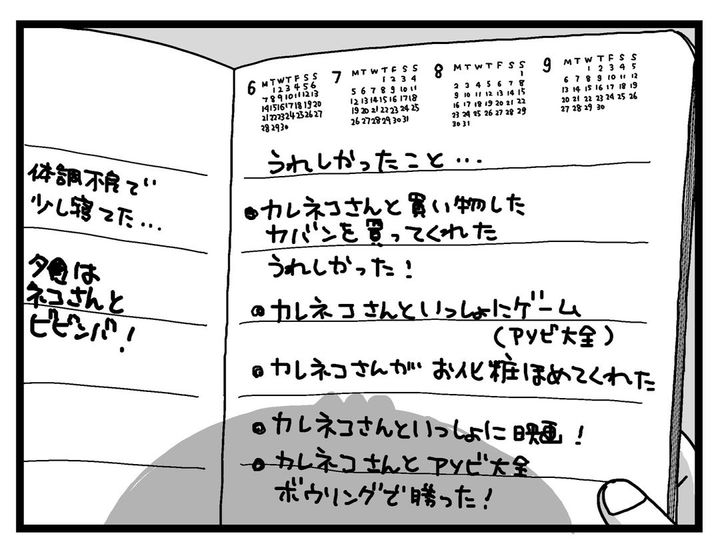 体調不良で
少し寝てた...
夕食は
ネコさんと
ビビンバ!
6
M T W T F S S
1 2 3 4 5 6
7 8 9 10 11 12 13
14 15 16 17 18 19 20
21 22 23 24 25 26 27
28 29 30
7
M T W T F S S
1 2 3 4
5 6 7 8 9 10 11
12 13 14 15 16 17 18
19 20 21 22 23 24 25
26 27 28 29 30 31
8
M T W T F S S
1
2 3 4 5 6 7 8
9 10 11 12 13 14 15
16 17 18 19 20 21 22
23 24 25 26 27 28 29
30 31
9
M T W T F S S
1 2 3 4 5
6 7 8 9 10 11 12
13 14 15 16 17 18 19
20 21 22 23 24 25 26
27 28 29 30
うれしかったこと...
●カレネコさんと買い物した
カバンを買ってくれた
うれしかった!
●カレネコさんといっしょにゲーム
(アソビ大全)
●カレネコさんがお化粧ほめてくれた
●カレネコさんといっしょに映画!
●カレネコさんとアソビ大全
ボウリングで勝った!